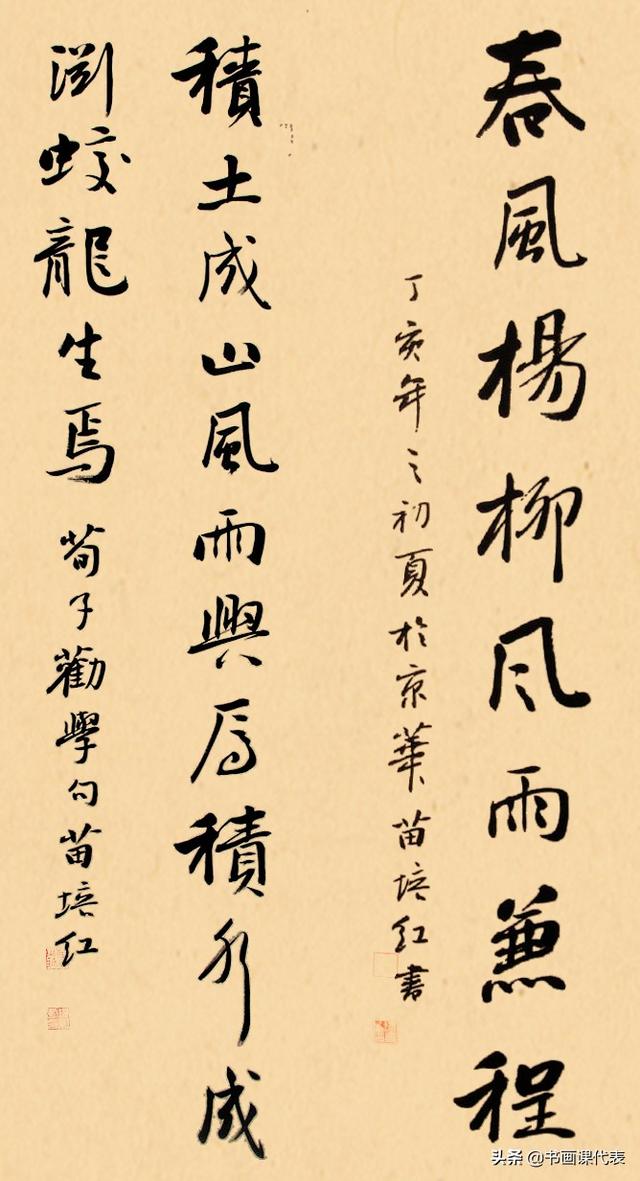 春風楊柳风雨兼程
丁亥年之初夏於京華苗培红書
積土成山風雨興焉積水成
渊蛟龍生焉 荀子勸學句苗培红
头条 @书画课代表